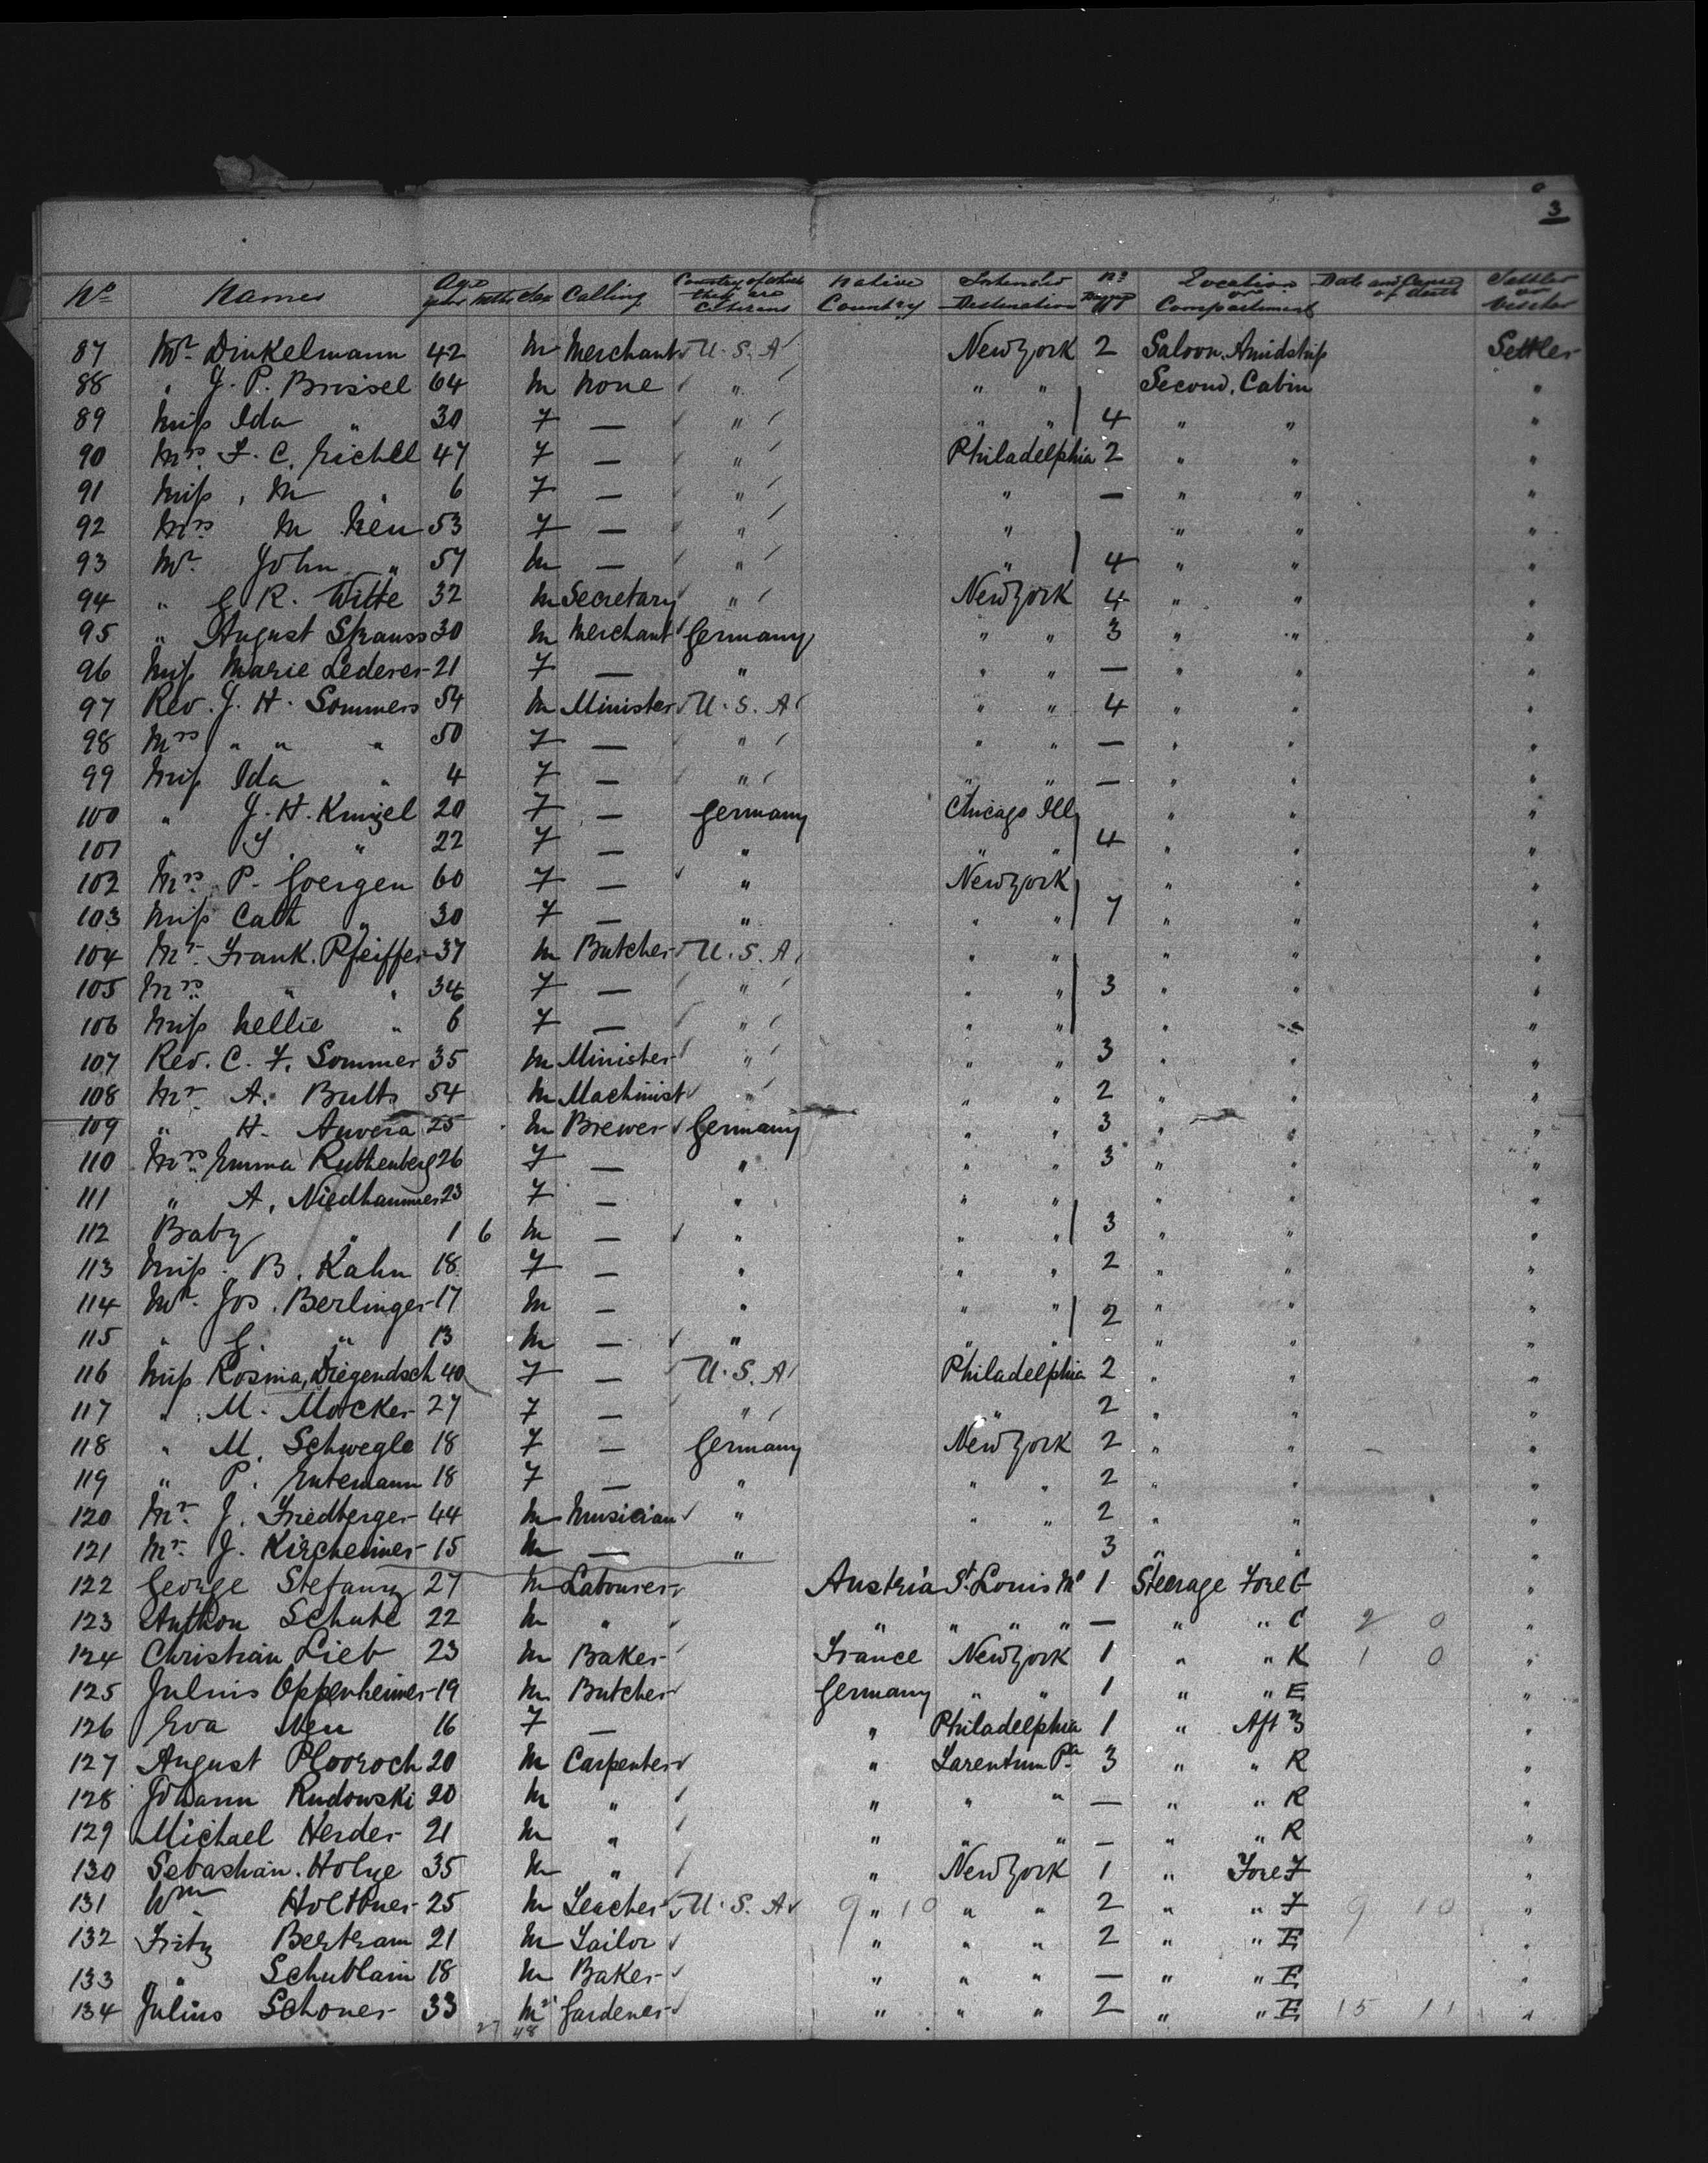 3
No Names Age years mths Sex Calling Country of which they are Citizens Native Country Intended Destination No Location or Compartment Date and Cause of death Settler or Visitor
87 Mr. Dinkelmann 42 m Merchant U.S.A New York 2 Saloon. Amidship Settler
88 " J. P. Brissel 64 m None " " " Second. Cabin "
89 Miss Ida " 30 f — " " " 4 " " "
90 Mrs. F. C. Eichell 47 f — " Philadelphia 2 " " "
91 Miss. M " 6 f — " " — " " "
92 Mrs M Neu 53 f — " " " " "
93 Mr. John " 57 m — " " 4 " " "
94 " G R. Witte 32 m Secretary " New York 4 " " "
95 " August Strauss 30 m Merchant Germany " " 3 " " "
96 Miss Marie Lederer 21 f — " " " — " " "
97 Rev. J. H. Sommers 54 m Minister U.S.A " " 4 " " "
98 Mrs " " " 50 f — " " " — " " "
99 Miss Ida " 4 f — " " " — " " "
100 " J. H. Kunzel 20 f — Germany Chicago Ill " " "
101 " Y " 22 f — " " " 4 " " "
102 Mrs. P. Goergen 60 f — " New York " " "
103 Miss Cath " 30 f — " " " 7 " " "
104 Mr. Frank. Pfeiffer 37 m Butcher U.S.A. " " " " "
105 Mrs " " 34 f — " " " 3 " " "
106 Miss Nellie " 6 f — " " " " " "
107 Rev. C. F. Sommer 35 m Minister " " " 3 " " "
108 Mr. A. Bults 54 m Machinist " " " 2 " " "
109 " H. Auvera 25 m Brewer Germany " " 3 " " "
110 Mrs. Emma Ruthenberg 26 f — " " " 3 " " "
111 " A. Niedhammer 23 f — " " " " " "
112 Baby " 1 6 m — " " " 3 " " "
113 Miss. B. Kahn 18 f — " " " 2 " " "
114 Mr. Jos. Berlinger 17 m — " " " 2 " " "
115 " G. " 13 m — " " " " " "
116 Miss Rosina, Diegendsch 40 f — U.S.A Philadelphia 2 " " "
117 " M. Mocker 27 f — " " 2 " " "
118 " M. Schwegle 18 f — Germany New York 2 " " "
119 " P. Entemann 18 f — " " " 2 " " "
120 Mr. J. Friedberger 44 m Musician " " " 2 " " "
121 Mr. J. Kircheimer 15 m — " 3 " " "
122 George Stefany 27 m Labourer Austria St. Louis Mo 1 Steerage Fore G "
123 Anthon Schute 22 m " " " " " — " " C 2 0 "
124 Christian Lieb 23 m Baker France New York 1 " " K 1 0 "
125 Julius Oppenheimer 19 m Butcher Germany " " 1 " " E "
126 Eva Neu 16 f — " Philadelphia 1 " Aft 3 "
127 August Plooroch 20 m Carpenter " Tarentum Pa 3 " " R "
128 Johann Rudowski 20 m " " " " — " " R "
129 Michael Herder 21 m " " " " — " " R "
130 Sebastian. Holye 35 m " " New York 1 " Fore F "
131 Wm Holthuer 25 m Teacher U.S.A 9 " 10 " " 2 " " F 9 10 "
132 Fritz Bertram 21 m Tailor " " " 2 " " E "
133 " Schublain 18 m Baker " " " — " " E "
134 Julius Schoner 33 m Gardener " " " 2 " " E 15 11 "
27 48